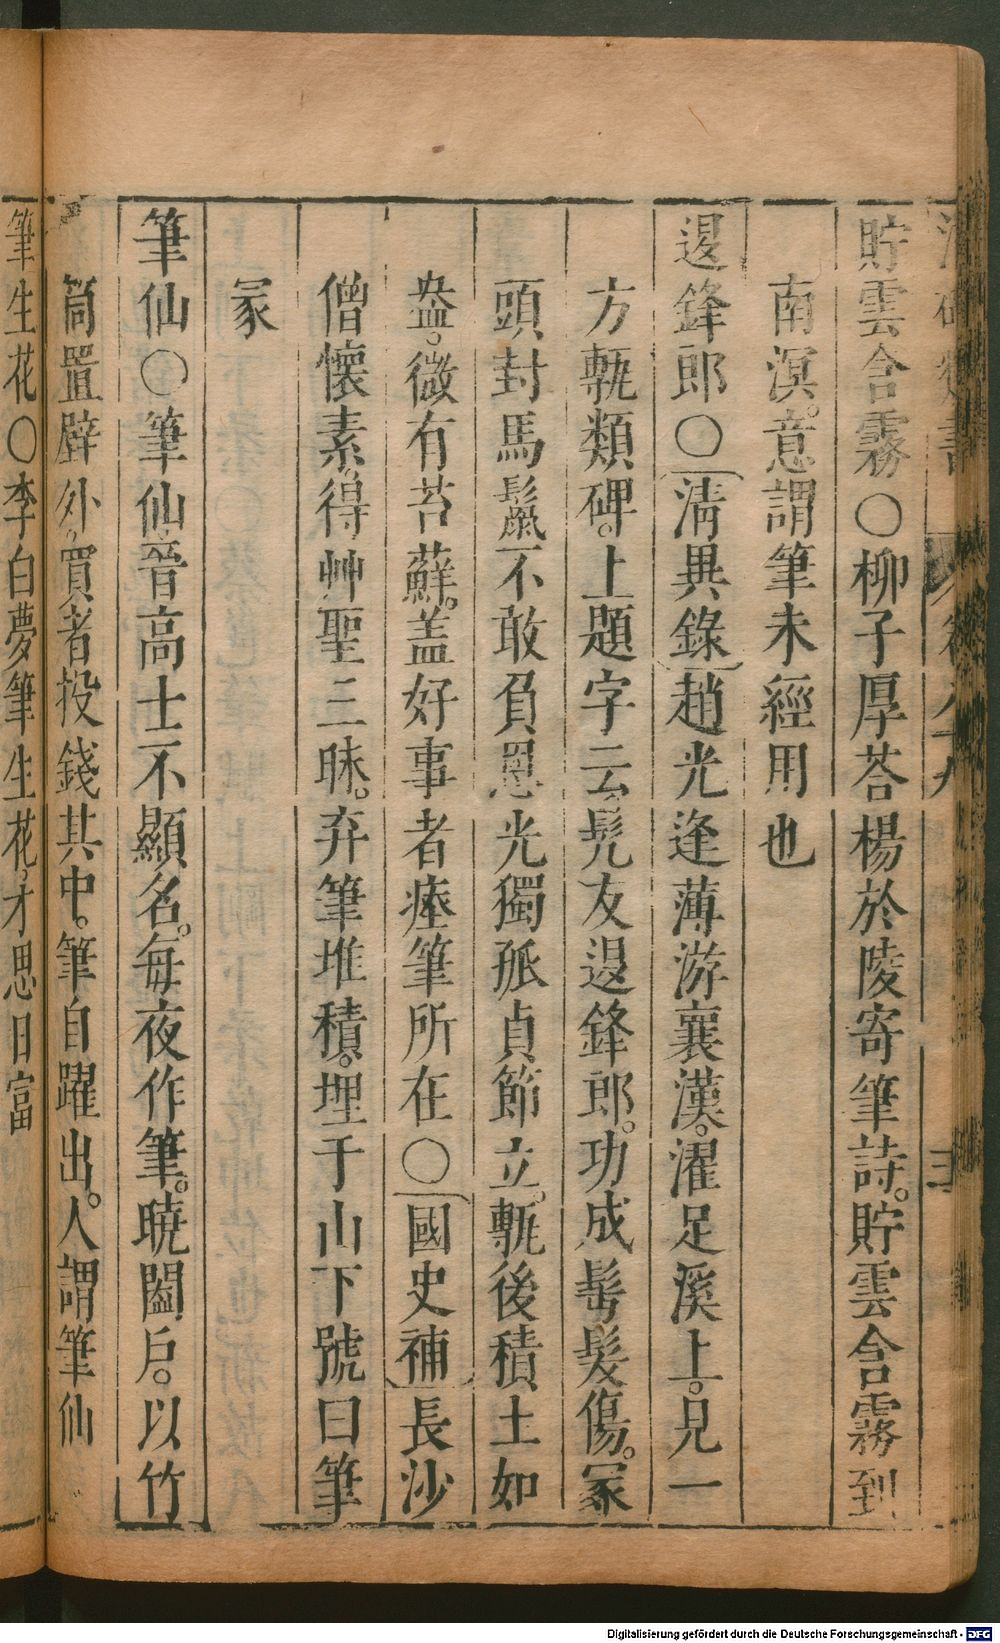 貯雲含霧○柳子厚荅楊於陵寄筆詩。貯雲含霧到
南溟。意謂筆未經用也
退鋒郎○清異錄趙光逢薄游襄漢。濯足溪上。見一
方甎類碑。上題字云髡友退鋒郎。功成鬂髮傷。冢
頭封馬鬛不敢負恩光獨孤貞節立。甎後積土如
盎。微有苔蘚。盖好事者瘞筆所在○國史補長沙
僧懷素得艸聖三昧。弃筆堆積。埋于山下號曰筆
冢
筆仙○筆仙晉高士不顯名。每夜作筆。曉闔戶。以竹
筒置壁外買者投錢其中。筆自躍出。人謂筆仙
筆生花○李白夢筆生花才思日富
Digitalisierung gefördert durch die Deutsche Forschungsgemeinschaft - DFG